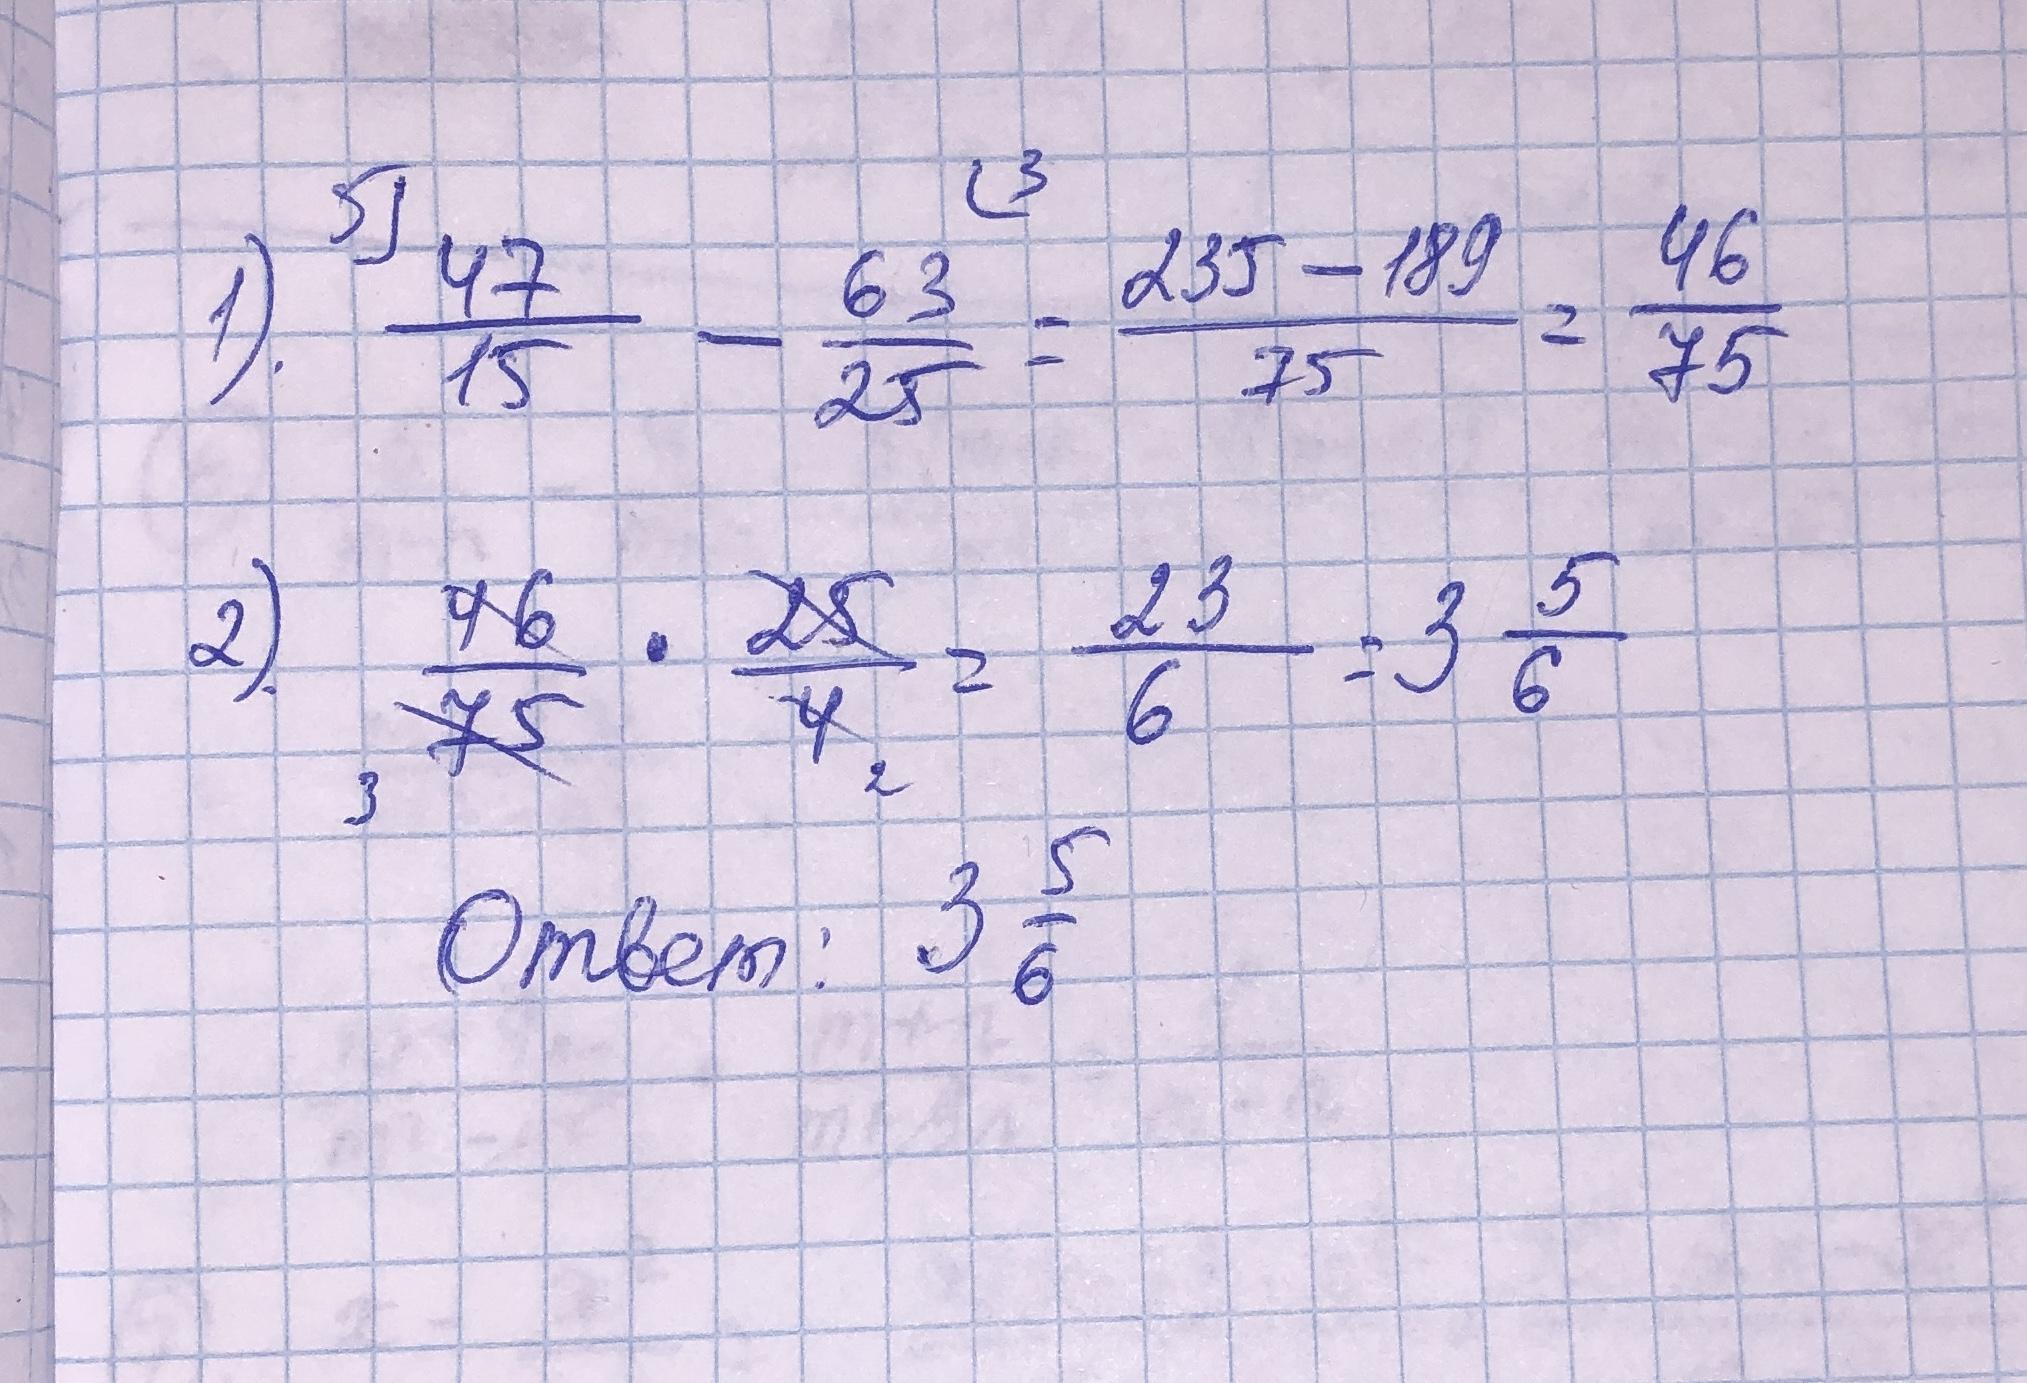 1). 5) 47/15 - 63/25 (3 = (235 - 189)/75 = 46/75
2). 46/75 3 · 25/4 2 = 23/6 = 3 5/6
Ответ: 3 5/6